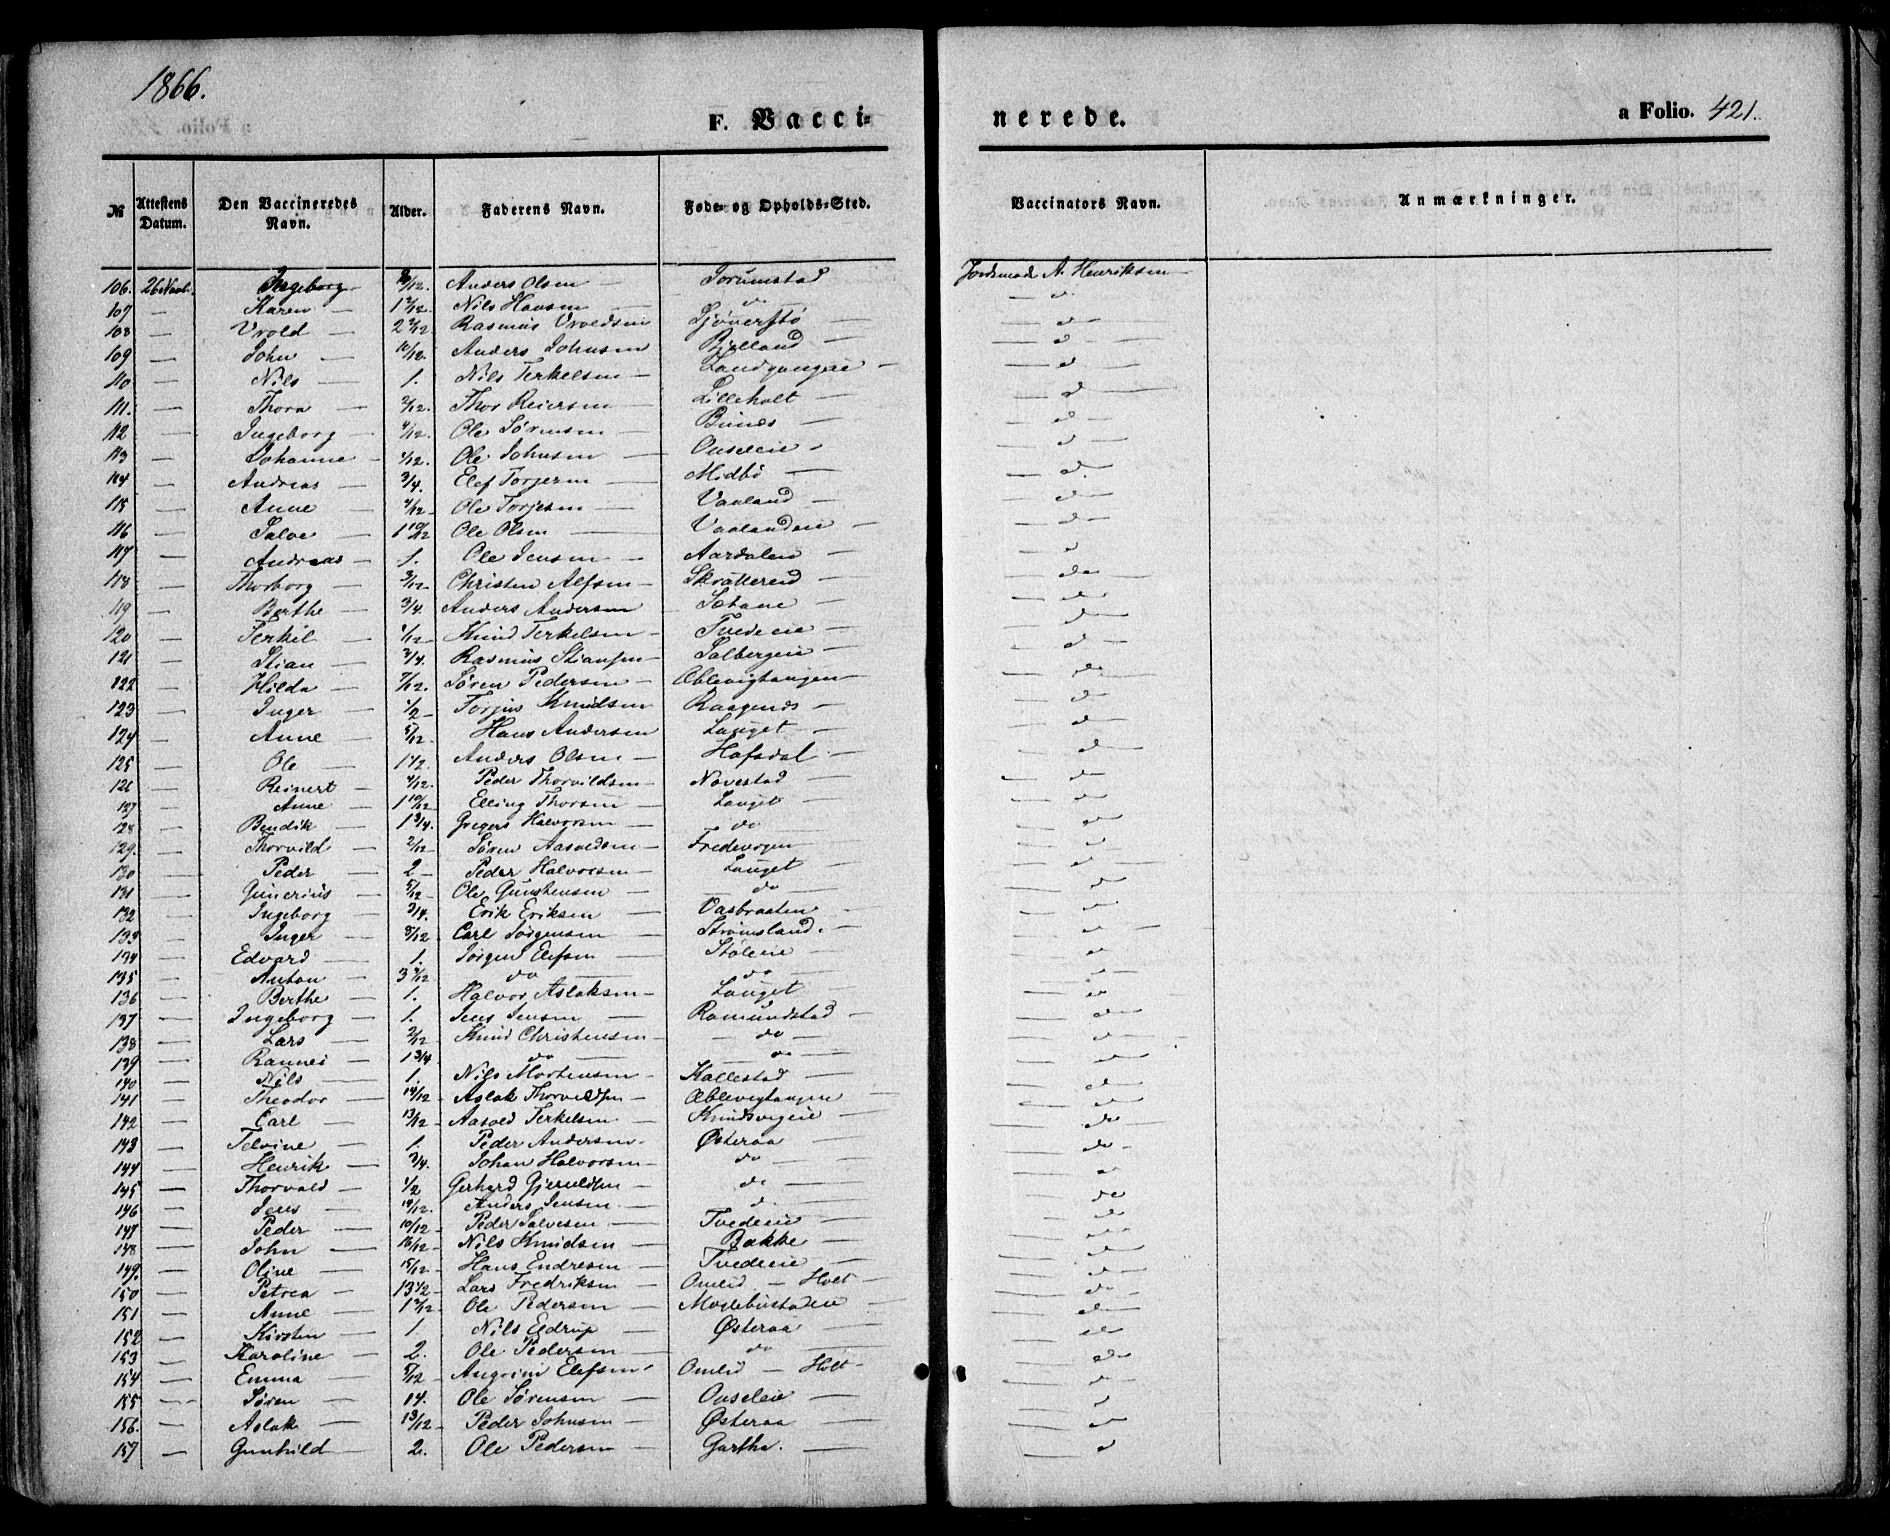 1866.
F. Vacci=
nerede.
a Folio. 421.
№ Attestens Datum. Den Vaccineredes Navn. Alder. Faderens Navn. Føde- og Opholds-Sted. Vaccinators Navn. Anmærkninger.
106. 26 Novb. Ingeborg Anders Olsen — Jordemode A. Henriksen —
107 — Karen — Nils Hansen — do
108 — Vrold — 2 2/12 Rasmus Vroldsen
109 — John — Anders Johnsen Bjelland —
110 — Nils — 1. Nils Terkelsen — Landgangeie —
111. — Thora — 2/12. Thor Reiersen — Lilleholt —
112 — Ingeborg — Ole Sørensen — Bunes —
113 — Johanne — Ole Johnsen — Ouseleie —
114 — Andreas — 3/4. Elef Torjesen — Midbö —
115 — Anne — Ole Torjesen — Vaaland —
116 — Salve — 1 10/12 Ole Olsen — Vaalandeie —
117 — Andreas — 1. Ole Jensen — Aardalen —
118 — Thorborg — 3/12 Christen Alfsen — Skrattereid —
119 — Berthe — 3/4. Anders Andersen
120 — Terkil — Knud Terkelsen — Tvedeeie —
121 — Stian — 3/4. Rasmus Stiansen — Solbergeie —
122 — Hilda — 7/12. Søren Pedersen — Æblevigtangen —
123 — Inger — 1/2 — Torjus Knudsen Kaagenes —
124 — Anne — 5/12 Hans Andersen Lauget —
125 — Ole — 1 1/2. Anders Olsen — Hofsdal —
126 — Reinert — 4/12. Peder Thorvildsen — Navestad —
127 — Anne — 1 10/12 Elling Thorsen — Lauget —
128 — Bendik — 1 3/4. Gregers Halvorsen — do —
129. — Thorvild — 2/12 Søren Aasvoldsen — Fredevogen —
130 — Peder — 2 — Peder Halvorsen — Lauget
131 — Gunerius — 5/12 — Ole Gunstensen — do —
132 — Ingeborg — 3/4. Erik Eriksen — Vasbraaten —
133 — Inger — Carl Jørgensen — Strømsland. —
134 — Edvard — 1. Jørgen Elefsen — Støleeie —
135 — Anton — 3 4/12 do — do —
136 — Berthe — 1. Halvor Aslaksen — Lauget —
137 — Ingeborg — 1. Jens Jensen — Romundstad —
138 — Lars — 2/12 Knud Christensen — do —
139 — Rannei — 1 3/4 do — do —
140 — Nils — 1. Nils Mortensen — Kallestad —
141 — Theodor — 14/12 — Aslak Thorvildsen — Æblevigtangen —
142 — Carl — 13/12 — Aasvold Terkelsen — Knudsvigeie —
143 — Telvine — 1. Peder Andersen — Østeraa —
144 — Henrik — 3/4. Johan Halvorsen — do —
145 — Thorvald — 1/2 Gerhard Gjeruldsen — do —
146 — Jens — 14/12. Anders Jensen. — d.
147 — Peder — 10/12 — Peder Salvesen — Tvedeeie —
148 — John — 16/12 — Nils Knudsen — Bakke —
149. — Oline — 15/12 — Hans Endresen — Tvedeeie —
150 — Petrea — 13 1/2 — Lars Fredriksen — Omlid — Holt —
151 — Anne — Ole Pedersen —
152 — Kirsten — 1. Nils Eldrup — Østeraa —
153 — Karoline — 2. Ole Pedersen — do —
154 — Emma — 5/12 Angrim Elefsen Omlid — Holt —
155 — Søren — 14. Ole Sørensen — Ouseleie —
156. — Aslak — 13/12 — Peder Johnsen — Østeraa —
157 — Gunhild — 2. Ole Pedersen — Gartha. —